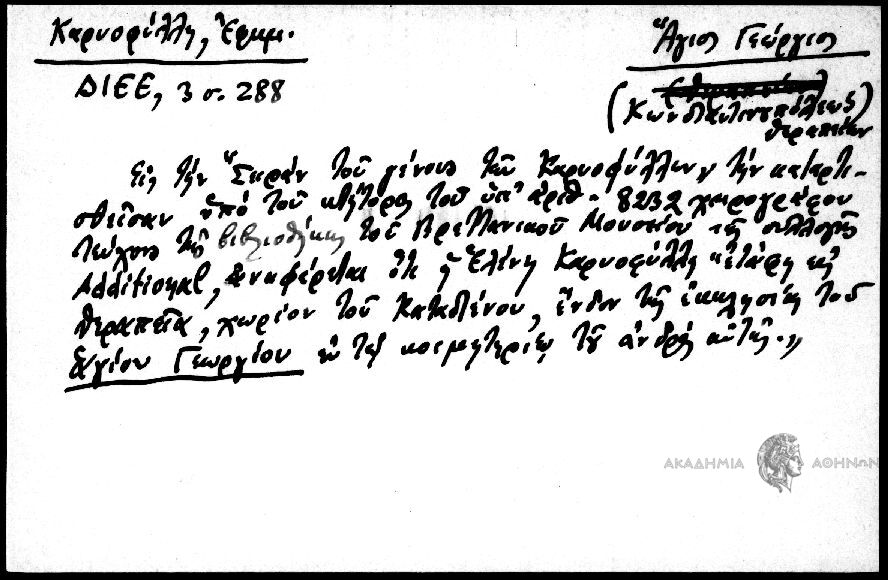 Καρυοφύλλη, Ἐμμ.
Ἅγιος Γεώργιος
ΔΙΕΕ, 3 σ. 288
(Κωνσταντινουπόλεως)
Θεραπείων
Εἰς τὴν "Σειρὰν τοῦ γένους τῶν Καρυοφύλλων, τὴν καταρτι-
σθεῖσαν ὑπὸ τοῦ κτήτορος τοῦ ὑπ' ἀριθ. 8232 χειρογράφου
τεύχους τῆς βιβλιοθήκης τοῦ Βρεττανικοῦ Μουσείου τῆς συλλογῆς
Additional, ἀναφέρεται ὅτι ἡ Ἑλένη Καρυοφύλλη "ἐτάφη εἰς
Θεραπεῖα, χωρίον τοῦ Καταστένου, ἔνδον τῆς ἐκκλησίας τοῦ
Ἁγίου Γεωργίου ἐν τῷ κοιμητηρίῳ τοῦ ἀνδρὸς αὐτῆς."
ΑΚΑΔΗΜΙΑ ΑΘΗΝΩΝ